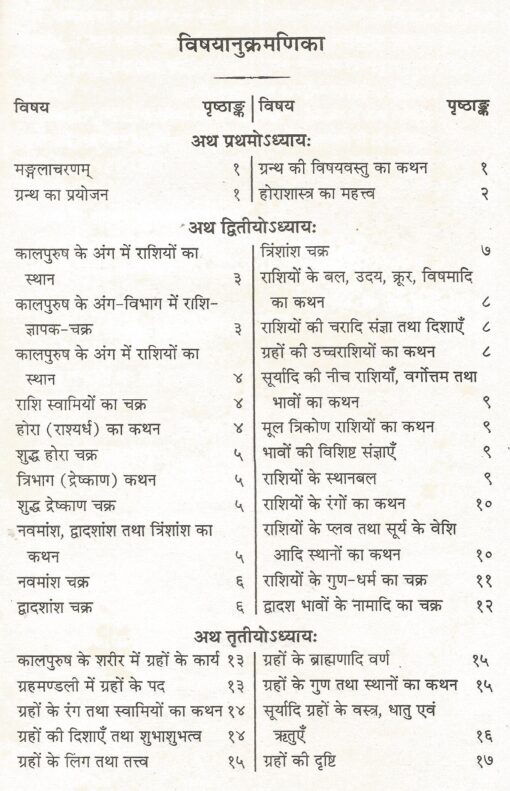 विषयानुक्रमणिका
विषय पृष्ठाङ्क
विषय पृष्ठाङ्क
अथ प्रथमोऽध्यायः
मङ्गलाचरणम् १
ग्रन्थ का प्रयोजन १
ग्रन्थ की विषयवस्तु का कथन १
होराशास्त्र का महत्त्व २
अथ द्वितीयोऽध्यायः
कालपुरुष के अंग में राशियों का
स्थान ३
कालपुरुष के अंग-विभाग में राशि-
ज्ञापक-चक्र ३
कालपुरुष के अंग में राशियों का
स्थान ४
राशि स्वामियों का चक्र ४
होरा (राश्यर्ध) का कथन ४
शुद्ध होरा चक्र ५
त्रिभाग (द्रेष्काण) कथन ५
शुद्ध द्रेष्काण चक्र ५
नवमांश, द्वादशांश तथा त्रिंशांश का
कथन ५
नवमांश चक्र ६
द्वादशांश चक्र ६
त्रिंशांश चक्र ७
राशियों के बल, उदय, क्रूर, विषमादि
का कथन ८
राशियों की चरादि संज्ञा तथा दिशाएँ ८
ग्रहों की उच्चराशियों का कथन ८
सूर्यादि की नीच राशियाँ, वर्गोत्तम तथा
भावों का कथन ९
मूल त्रिकोण राशियों का कथन ९
भावों की विशिष्ट संज्ञाएँ ९
राशियों के स्थानबल ९
राशियों के रंगों का कथन १०
राशियों के प्लव तथा सूर्य के वेशि
आदि स्थानों का कथन १०
राशियों के गुण-धर्म का चक्र ११
द्वादश भावों के नामादि का चक्र १२
अथ तृतीयोऽध्यायः
कालपुरुष के शरीर में ग्रहों के कार्य १३
ग्रहमण्डली में ग्रहों के पद १३
ग्रहों के रंग तथा स्वामियों का कथन १४
ग्रहों की दिशाएँ तथा शुभाशुभत्व १४
ग्रहों के लिंग तथा तत्त्व १५
ग्रहों के ब्राह्मणादि वर्ण १५
ग्रहों के गुण तथा स्थानों का कथन १५
सूर्यादि ग्रहों के वस्त्र, धातु एवं
ऋतुएँ १६
ग्रहों की दृष्टि १७